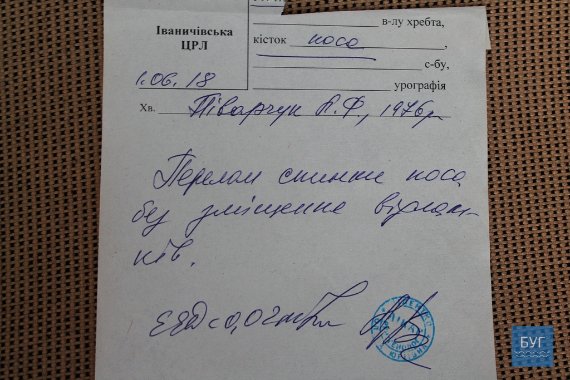 в-лу хребта,
Іваничівська
ЦРЛ
кісток носа,
с-бу,
1.06.18
урографія
Хв. Піварчук А.Ф., 1976р
Перелом спинки носа
без зміщення відлам-
ків.
ЕЕД < 0,02 мЗв
БУГ